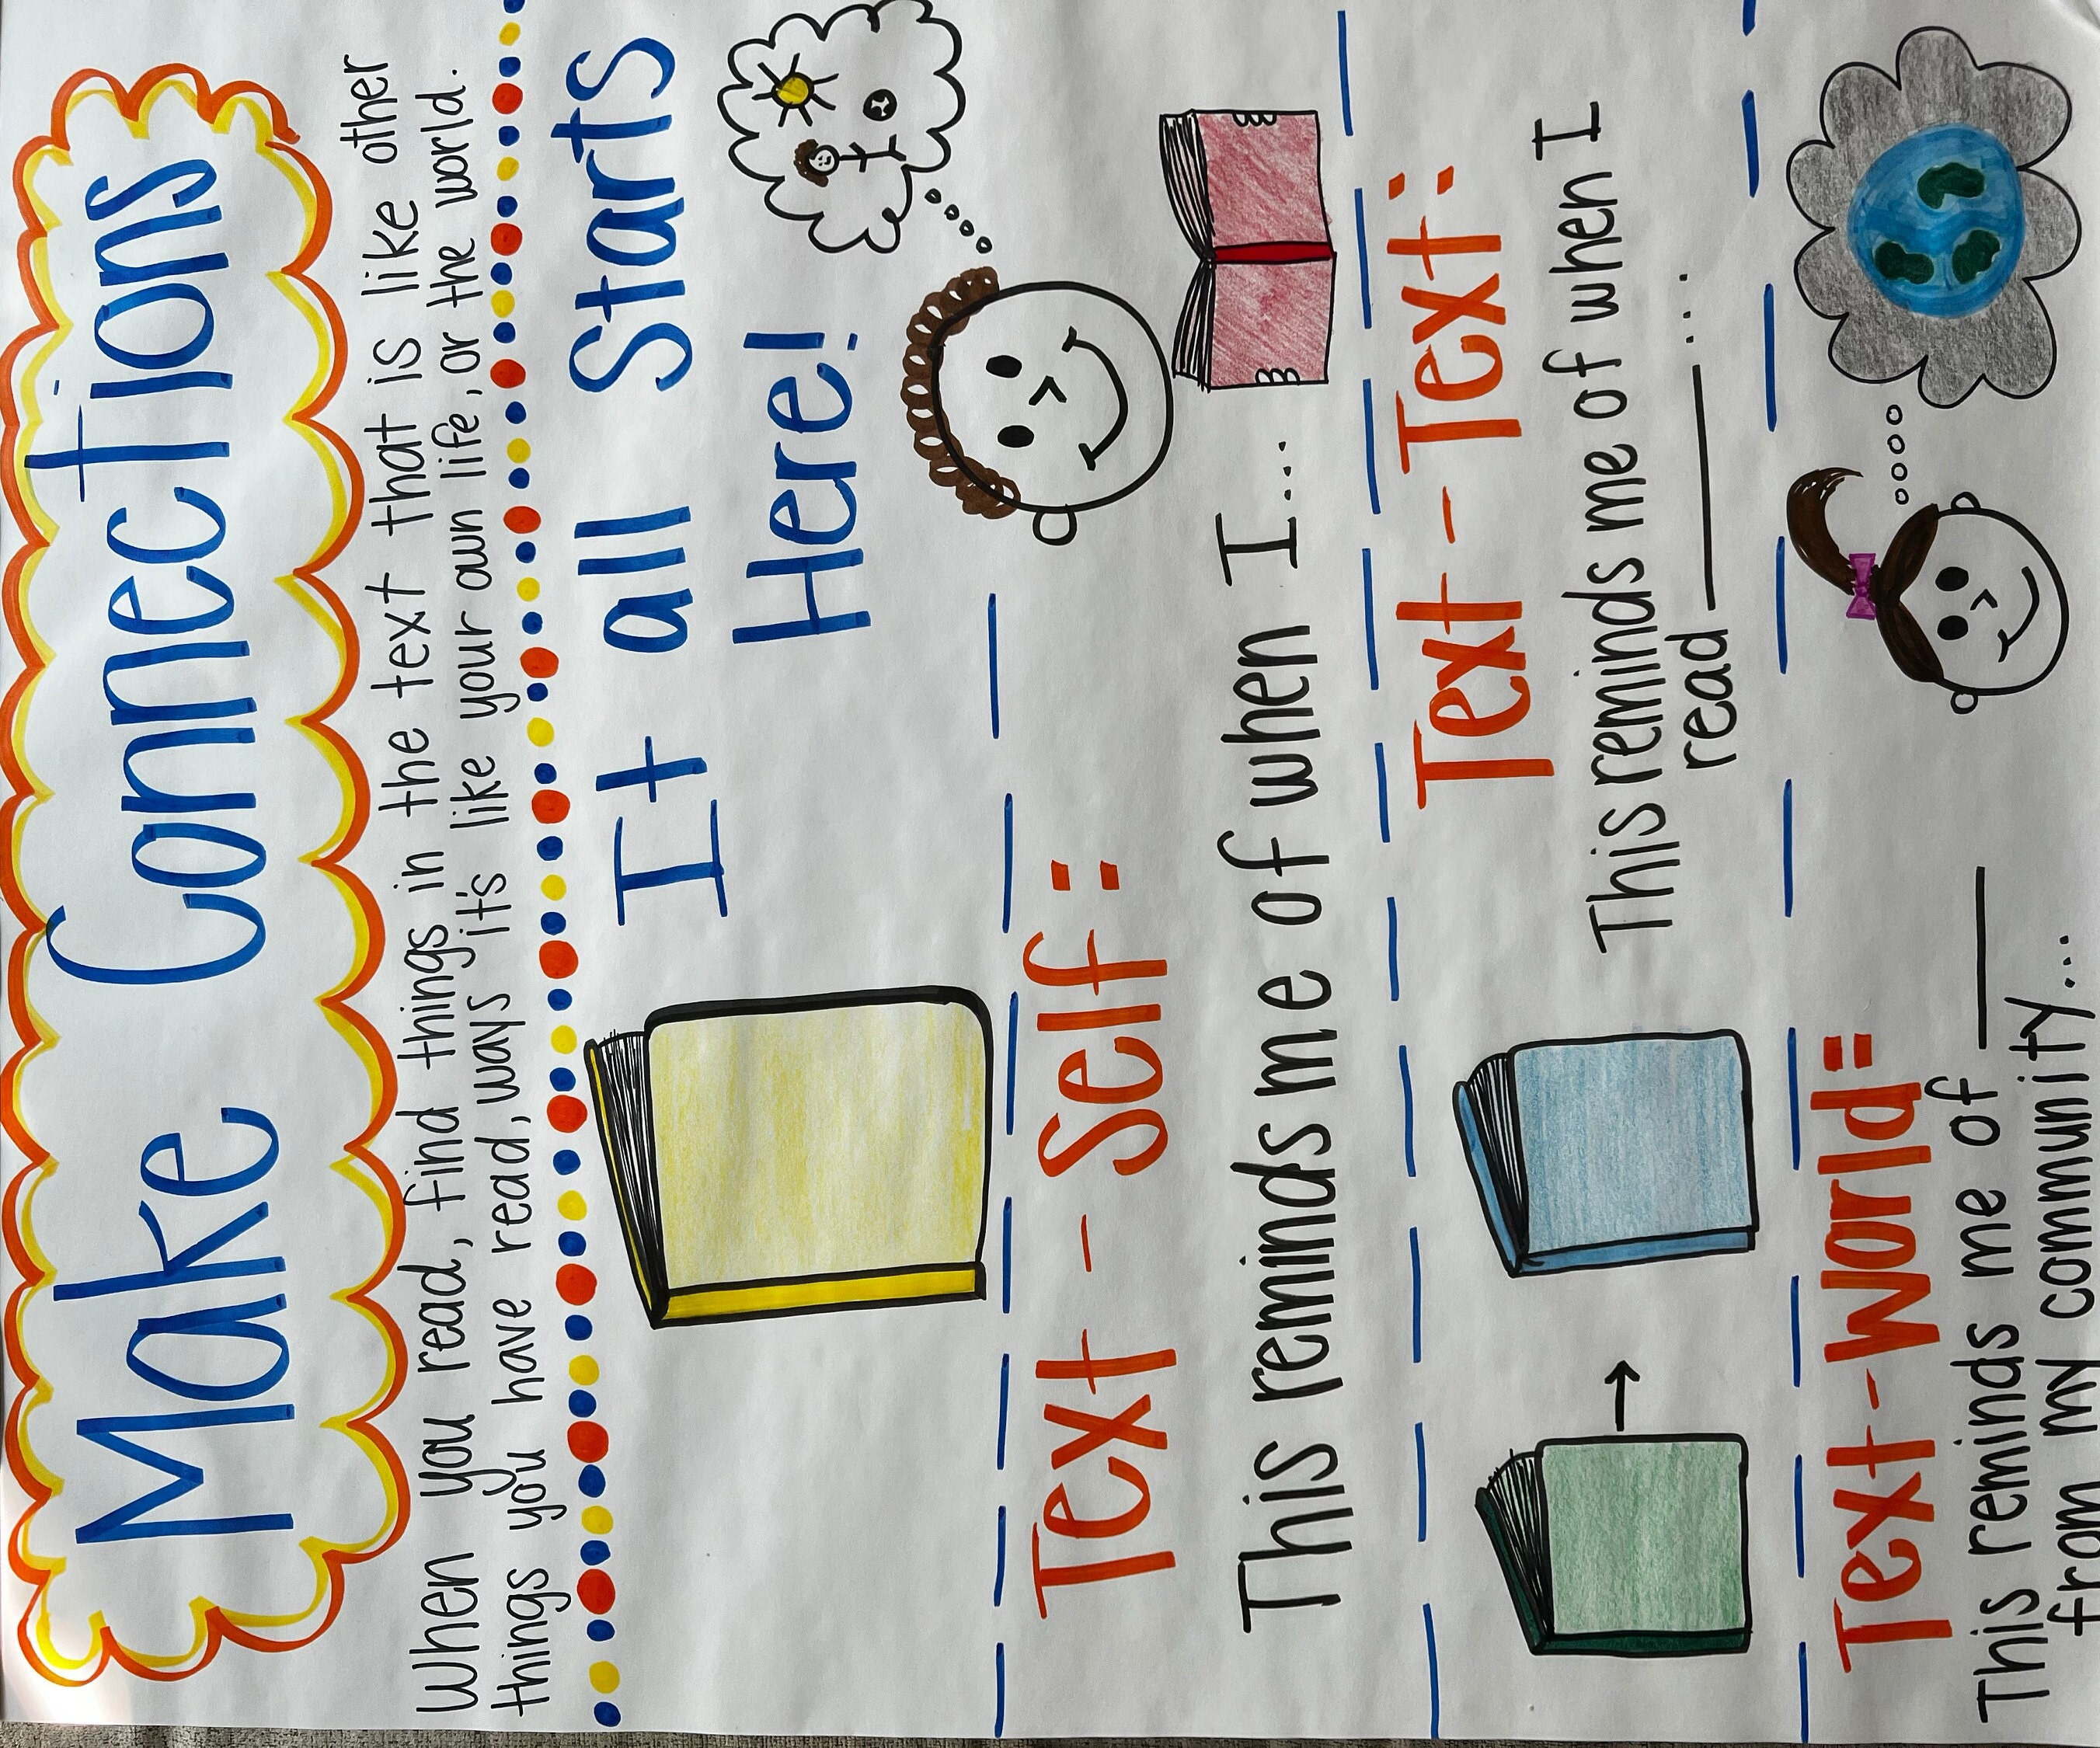 Make Connections
When you read, find things in the text that is like other
things you have read, ways it's like your own life, or the world.
It all Starts
Here!
Text - Self:
This reminds me of when I...
Text - Text:
This reminds me of when I
read ______...
Text - World:
This reminds me of ______
from my community...